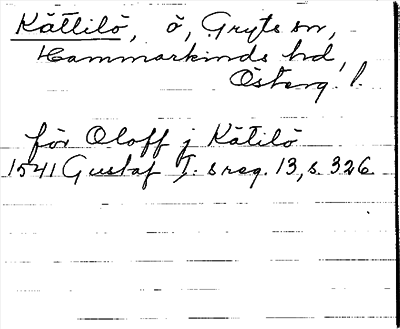 Kättilö, ö, Gryts sn,
Hammarkinds hd,
Österg. l.
för Oloff j Kätilö
1541 Gustaf I:s reg. 13, s. 326.